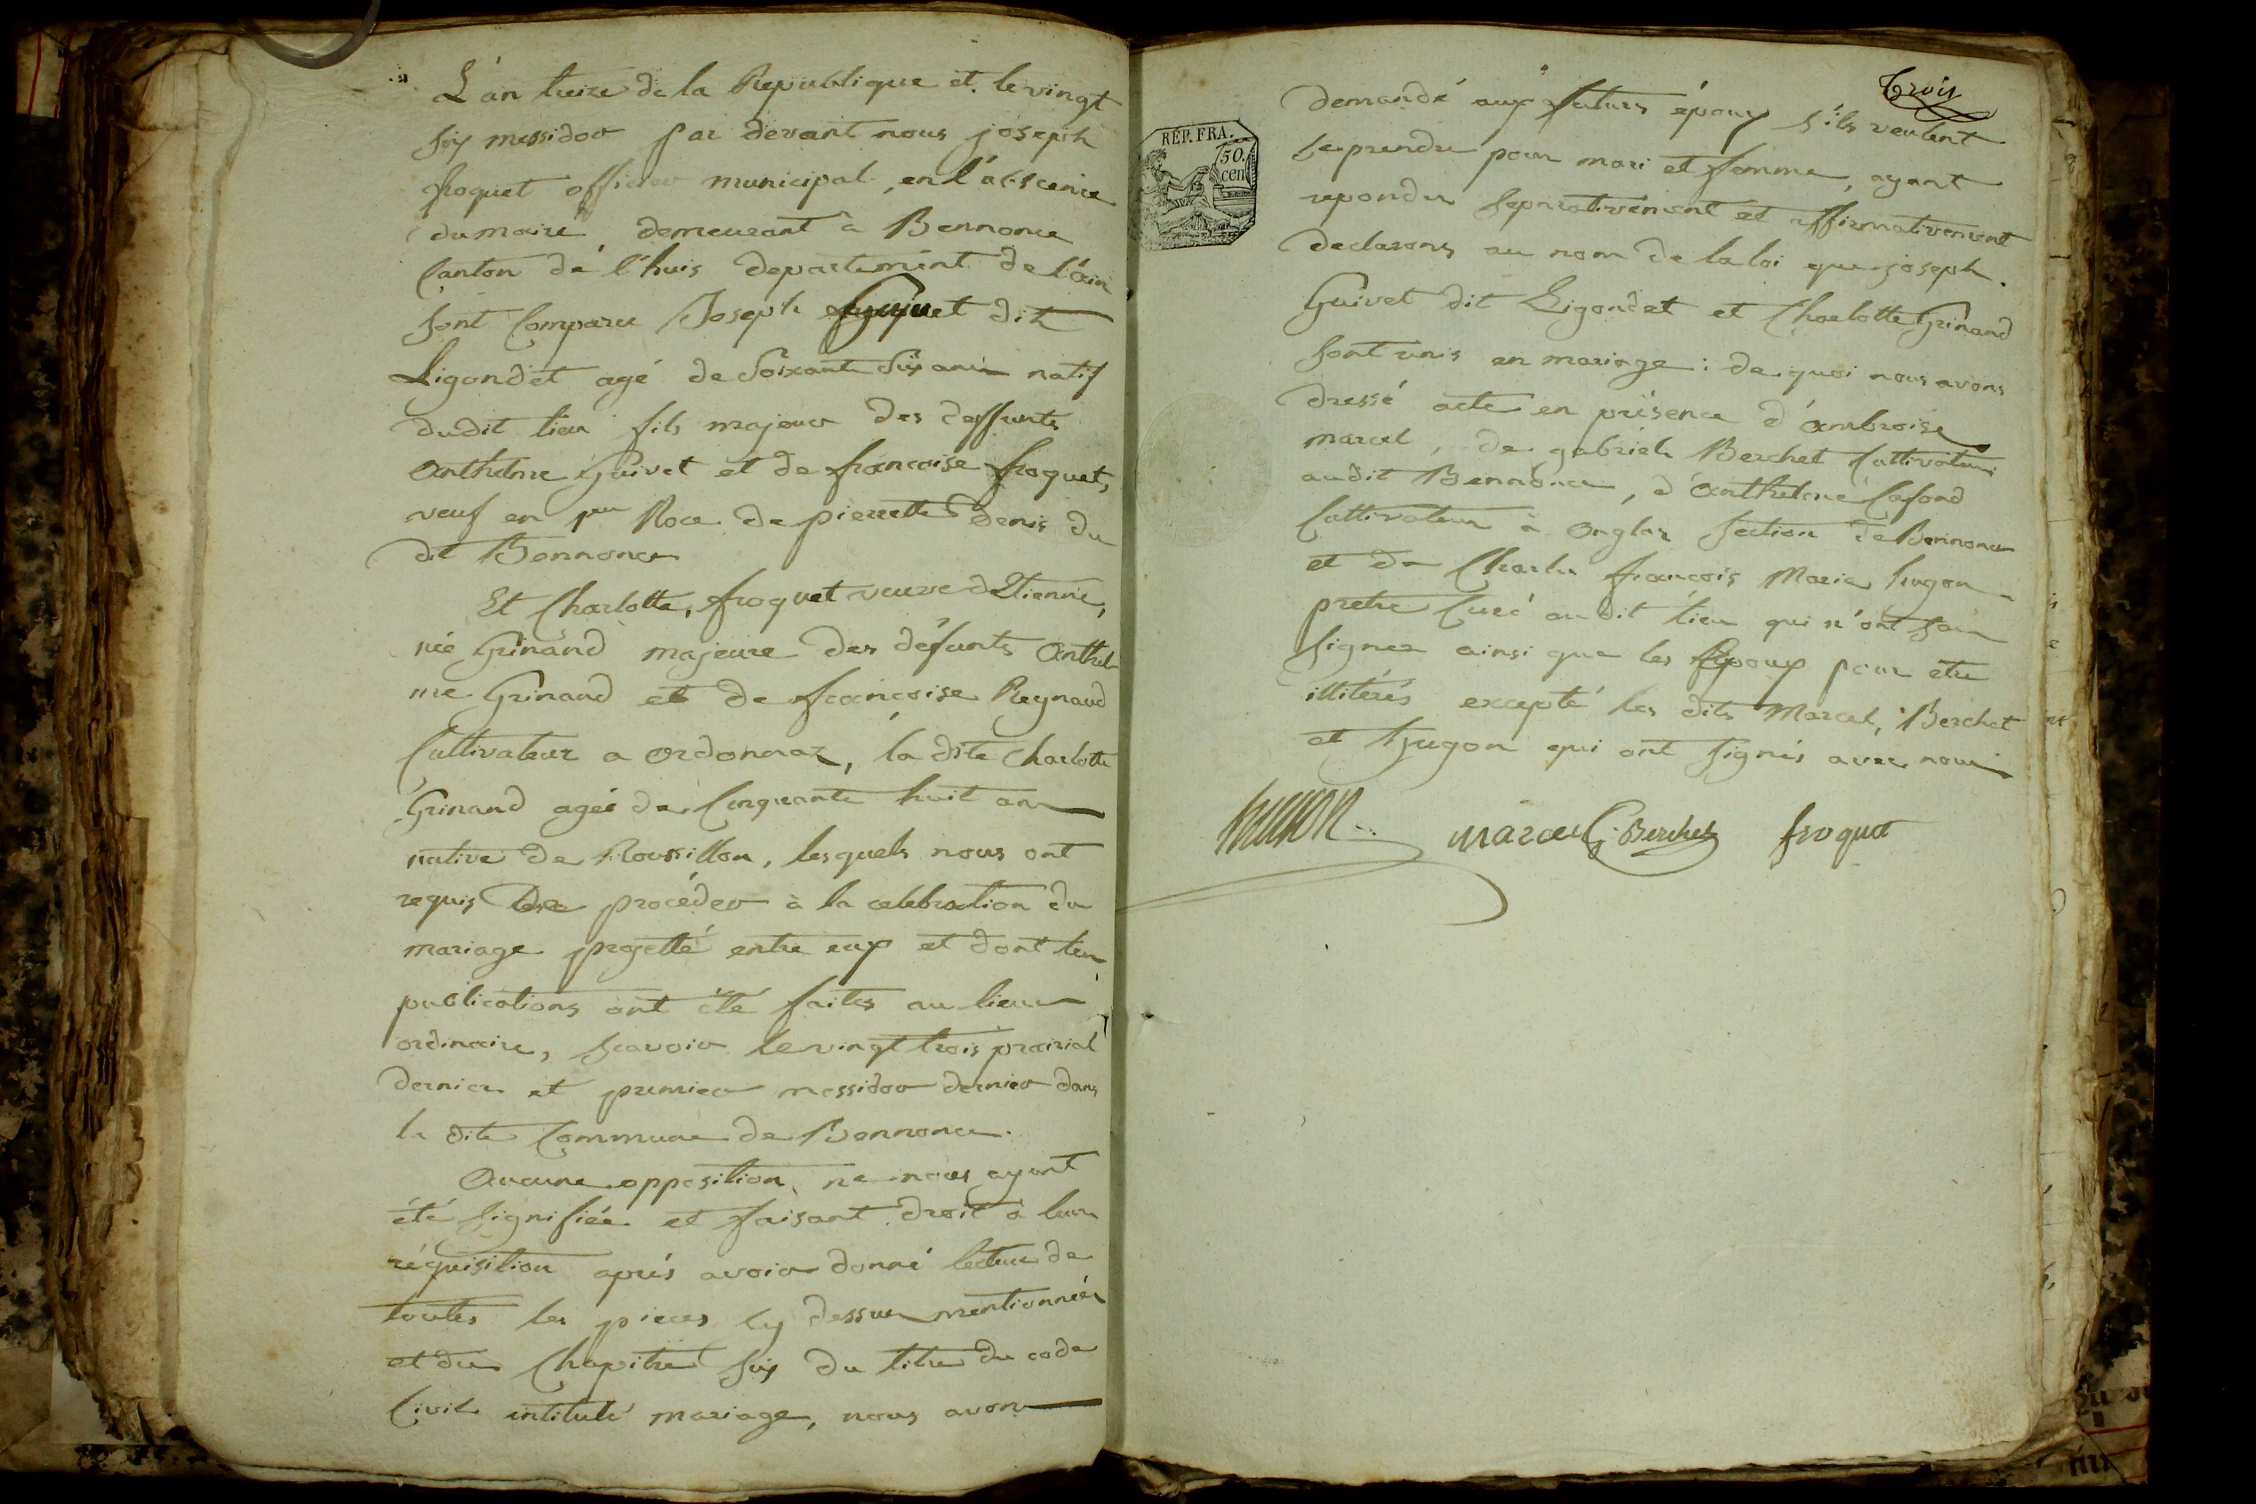 L'an treize de la Republique et le vingt
six messidor par devant nous joseph
froquet officier municipal, en l'abscence
du maire demeurant à Bennonce
Canton de l'huis departement de l'ain
sont Comparu Joseph Guivet dit
Ligondet agé de Soixante Six ans natif
dudit lieu fils majeur des deffunts
Anthelme Guivet et de francoise froquet,
veuf en 1er Noce de pierrette Denis du
dit Bennonce
Et Charlotte, froquet veuve d'Etienne,
née Grinand majeure des défunts Anthel
me Grinand et de francoise Reynaud
Cultivateur a ordonnaz, la dite Charlotte
Grinand agée de Cinquante huit ans
native de Roussillon, lesquels nous ont
requis de procéder à la celebration du
mariage projetté entre eux et dont les
publications ont été faites au lieu
ordinaire, scavoir le vingt trois prairial
dernier et premier messidor dernier dans
la dite Commune de Bennonce.
Aucune opposition ne nous ayant
été signifiée et faisant droit à leur
réquisition aprés avoir donné lecture de
toutes les pieces cy dessus mentionnées
et du Chapitre six du titre du code
Civil intitulé mariage, nous avons
Trois
RÉP. FRA.
50.
cen
demandé aux futurs époux s'ils veulent
se prendre pour mari et femme, ayant
repondu separativement et affirmativement
declarons au nom de la loi que joseph
Guivet dit Ligondet et Charlotte Grinand
sont unis en mariage : de quoi nous avons
dressé acte en présence d'ambroise
marcel, de gabriel Berchet Cultivateurs
audit Bennonce, d'Anthelme Lafond
Cultivateur à onglas section de Bennonce
et de Charles francois Marie hugon
pretre Curé audit lieu qui n'ont sceu
signer ainsi que les Epoux pour etre
illitérés excepté les dits Marcel, Berchet
et hugon qui ont signés avec nous
hugon marcel G. Berchet froquet